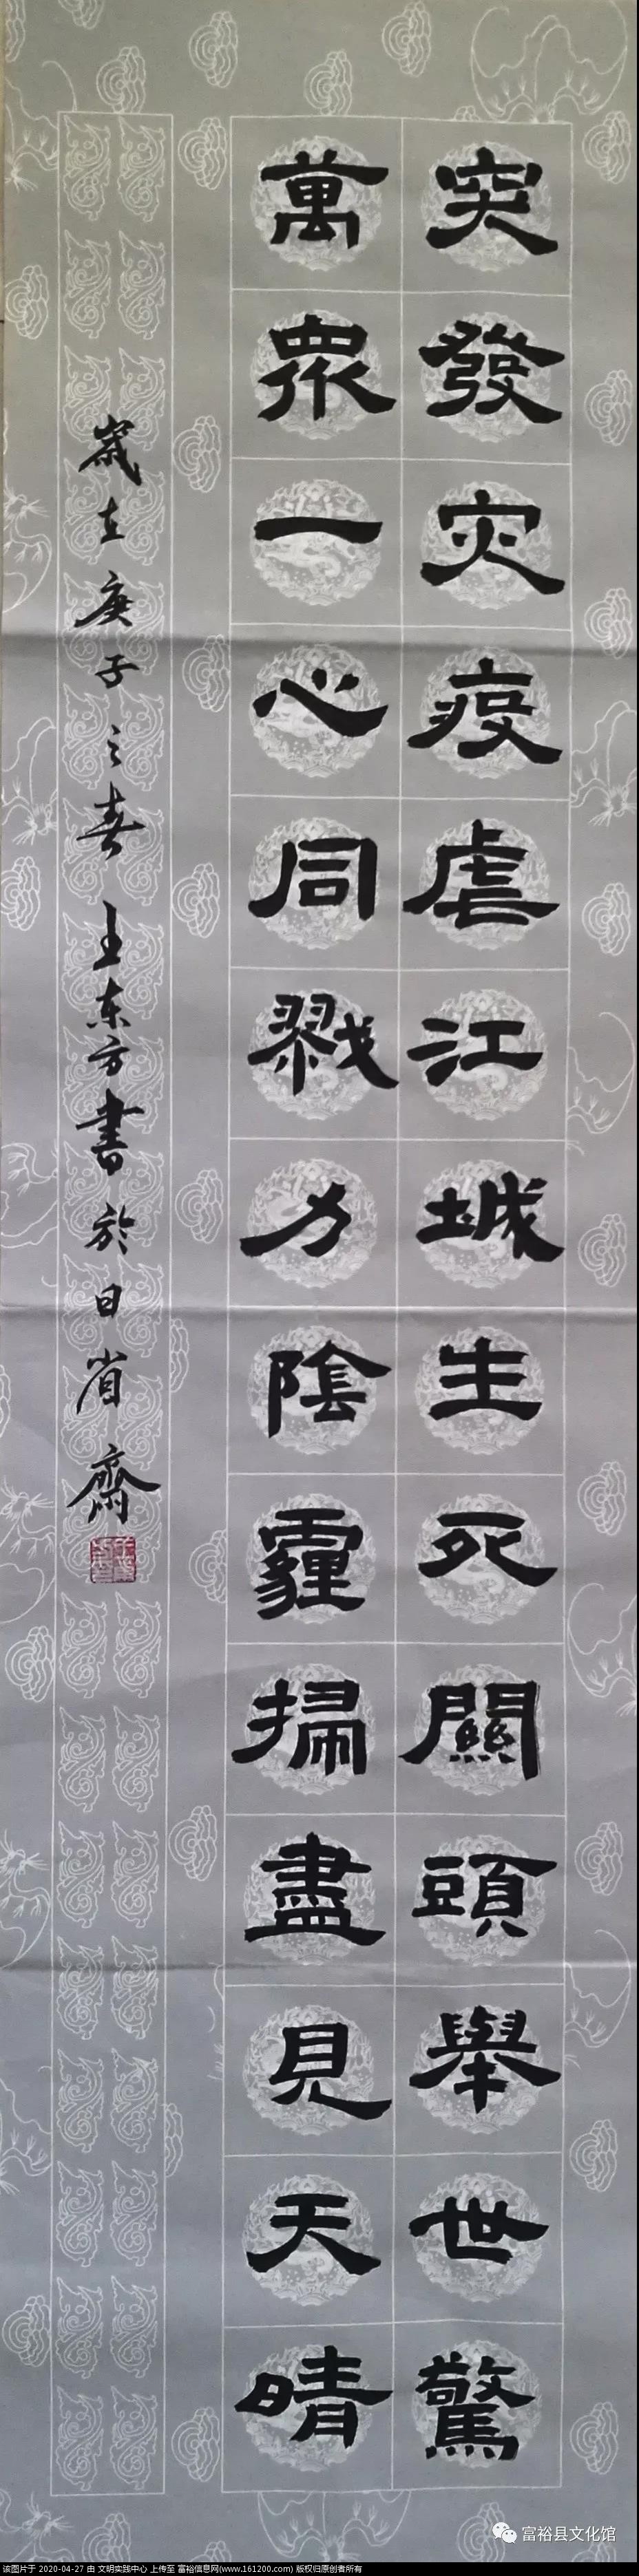 突發灾疫虐江城生死關頭舉世驚
萬眾一心同戮力陰霾掃盡見天晴
歲在庚子之春王东方書於日省齋
富裕县文化馆
该图片于 2020-04-27 由 文明实践中心 上传至 富裕信息网(www.161200.com) 版权归原创者所有